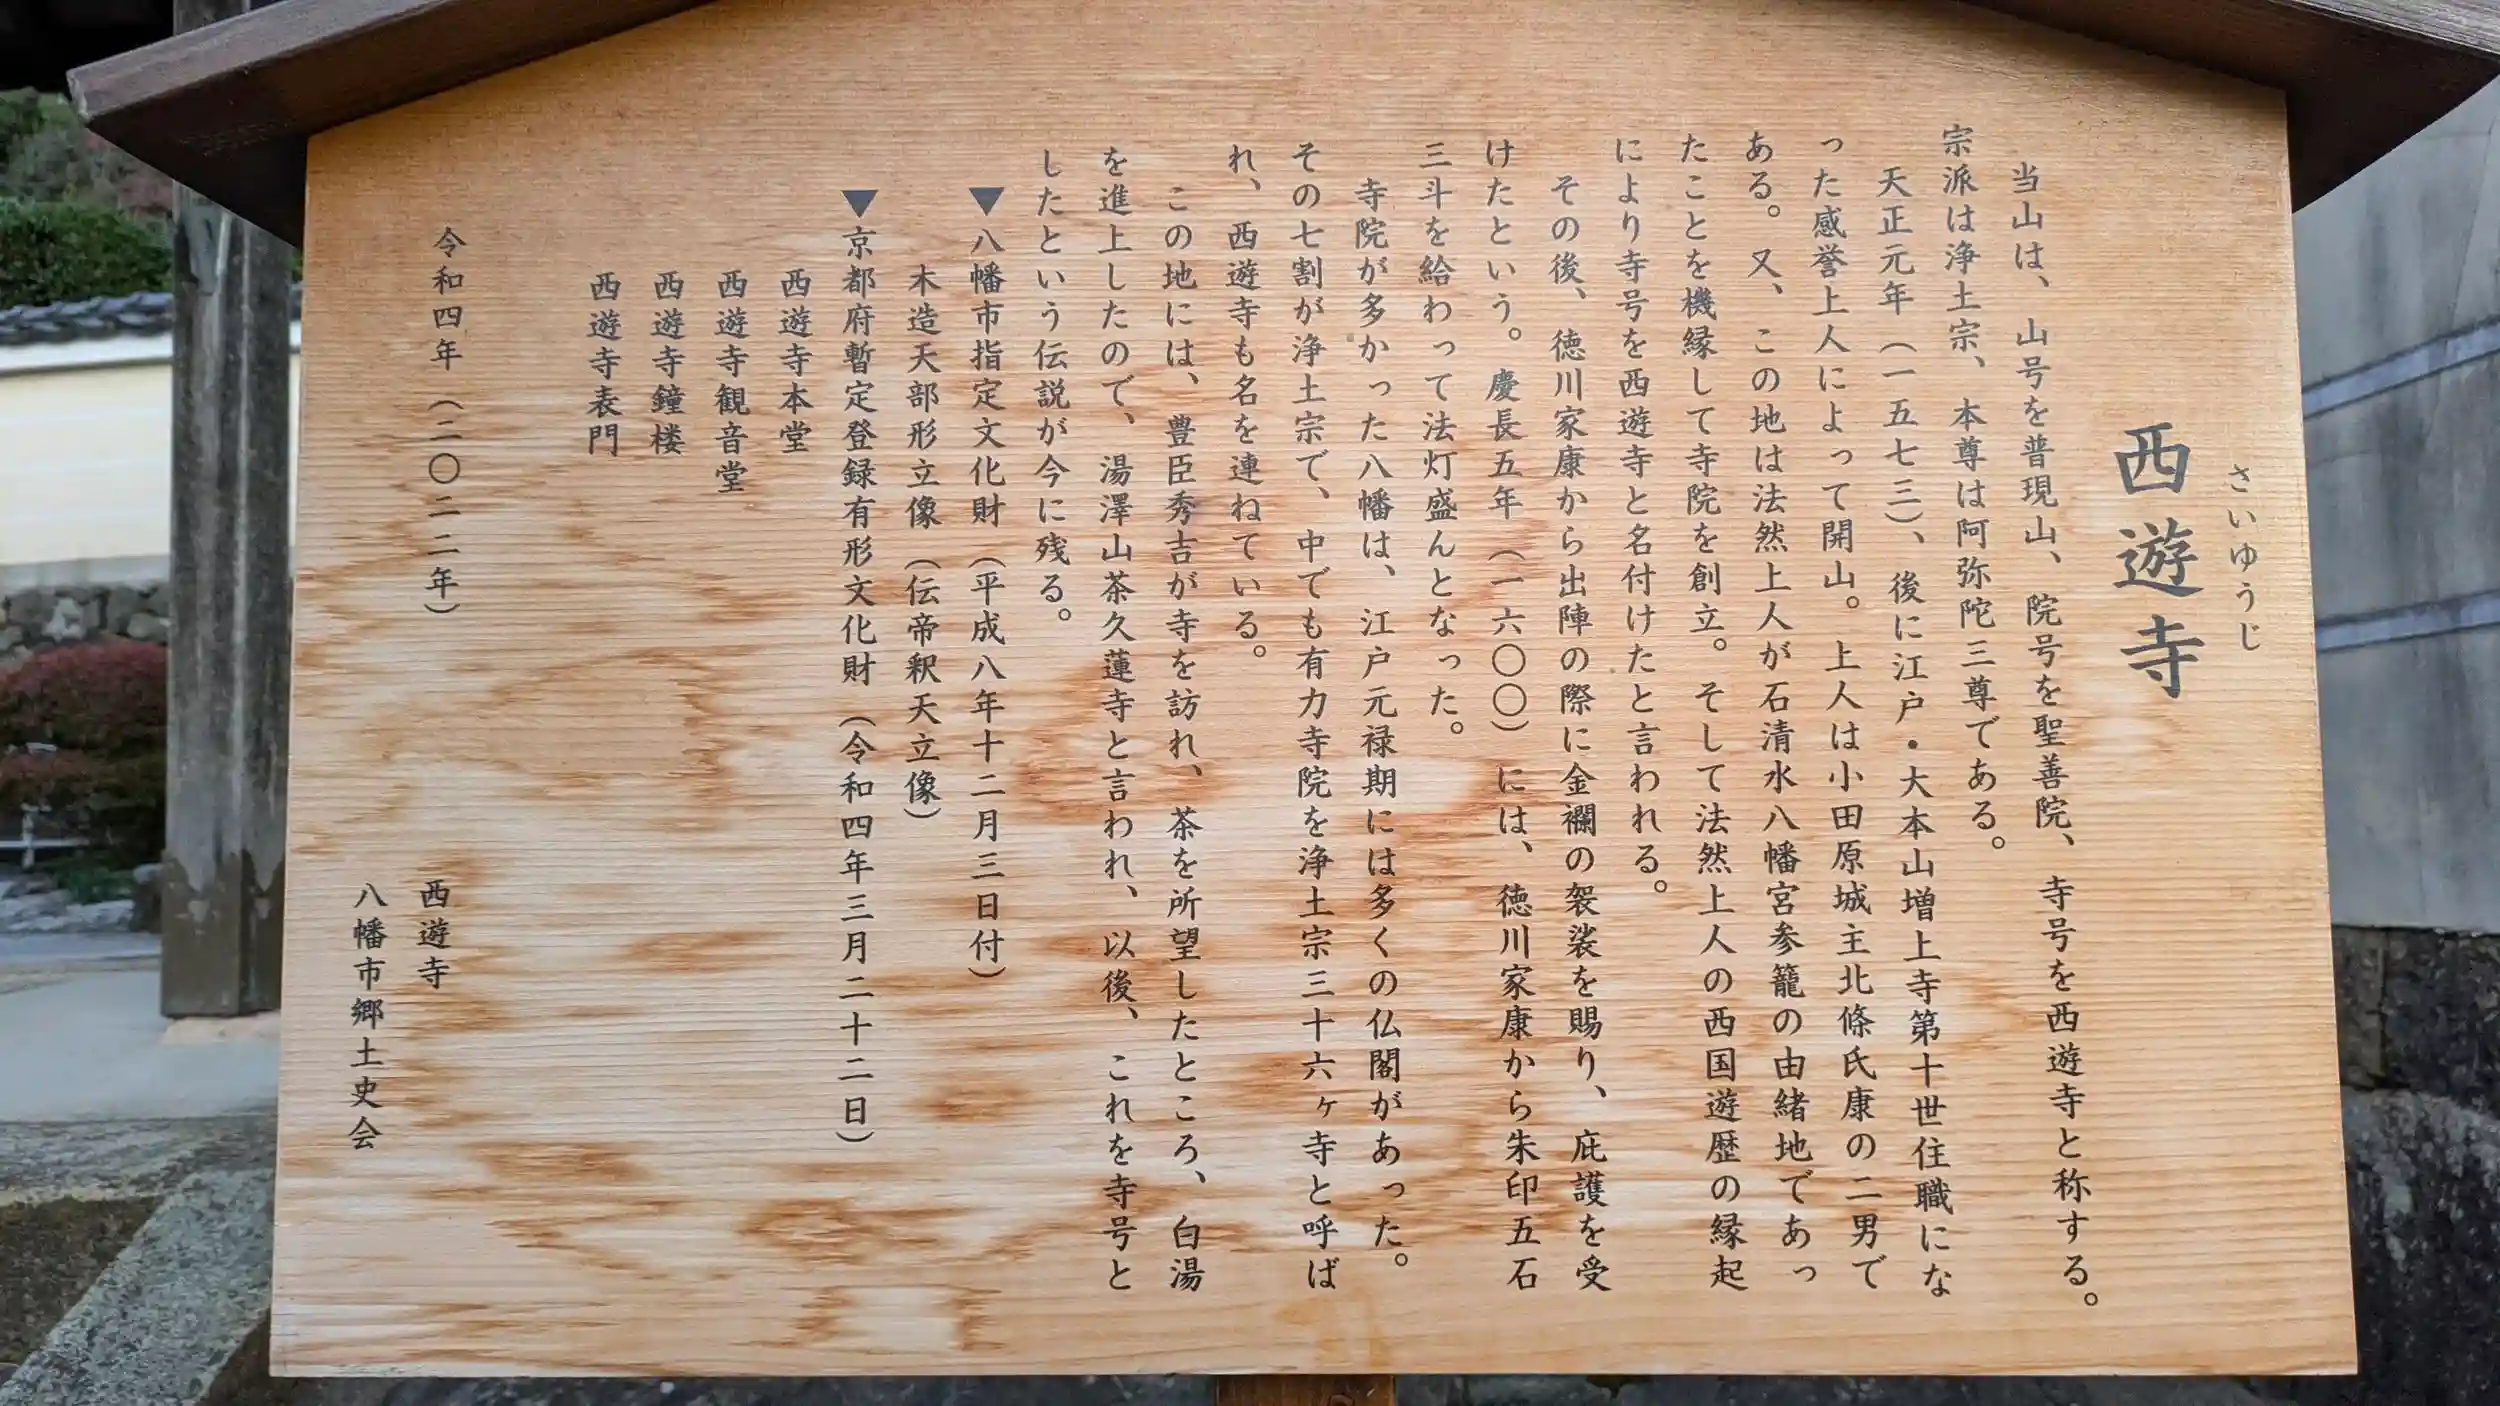 さいゆうじ
西遊寺
当山は、山号を普現山、院号を聖善院、寺号を西遊寺と称する。
宗派は浄土宗、本尊は阿弥陀三尊である。
天正元年（一五七三）、後に江戸・大本山増上寺第十世住職にな
った感誉上人によって開山。上人は小田原城主北條氏康の二男で
ある。又、この地は法然上人が石清水八幡宮参籠の由緒地であっ
たことを機縁して寺院を創立。そして法然上人の西国遊歴の縁起
により寺号を西遊寺と名付けたと言われる。
その後、徳川家康から出陣の際に金襴の袈裟を賜り、庇護を受
けたという。慶長五年（一六〇〇）には、徳川家康から朱印五石
三斗を給わって法灯盛んとなった。
寺院が多かった八幡は、江戸元禄期には多くの仏閣があった。
その七割が浄土宗で、中でも有力寺院を浄土宗三十六ヶ寺と呼ば
れ、西遊寺も名を連ねている。
この地には、豊臣秀吉が寺を訪れ、茶を所望したところ、白湯
を進上したので、湯澤山茶久蓮寺と言われ、以後、これを寺号と
したという伝説が今に残る。
▼八幡市指定文化財（平成八年十二月三日付）
木造天部形立像（伝帝釈天立像）
▼京都府暫定登録有形文化財（令和四年三月二十二日）
西遊寺本堂
西遊寺観音堂
西遊寺鐘楼
西遊寺表門
令和四年（二〇二二年）
西遊寺
八幡市郷土史会